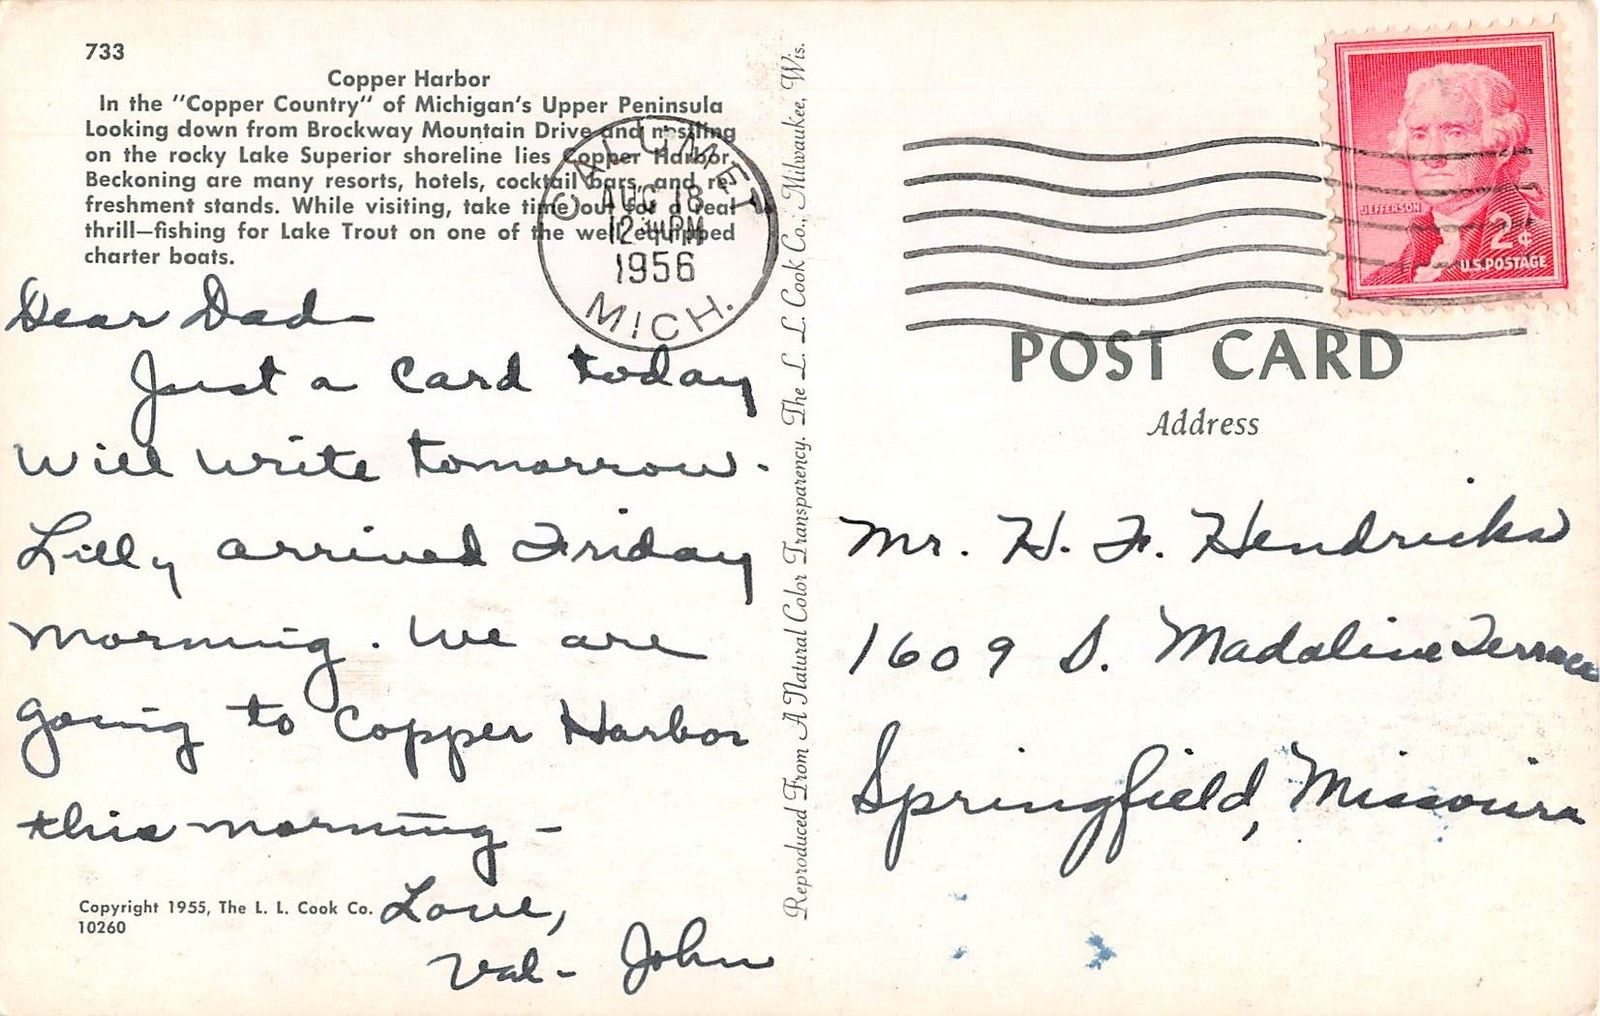 733
Copper Harbor
In the "Copper Country" of Michigan's Upper Peninsula
Looking down from Brockway Mountain Drive and nestling
on the rocky Lake Superior shoreline lies Copper Harbor.
Beckoning are many resorts, hotels, cocktail bars, and re-
freshment stands. While visiting, take time out for a real
thrill—fishing for Lake Trout on one of the well equipped
charter boats.
CALUMET
AUG 18
12 PM
1956
MICH.
Dear Dad—
Just a card today
Will write tomorrow.
Lilly arrived Friday
morning. We are
going to Copper Harbor
this morning —
Love,
Val - John
Copyright 1955, The L. L. Cook Co.
10260
Reproduced From A Natural Color Transparency. The L. L. Cook Co., Milwaukee, Wis.
JEFFERSON
2¢
U.S. POSTAGE
POST CARD
Address
Mr. H. F. Hendricks
1609 S. Madaline Terrace
Springfield, Missouri